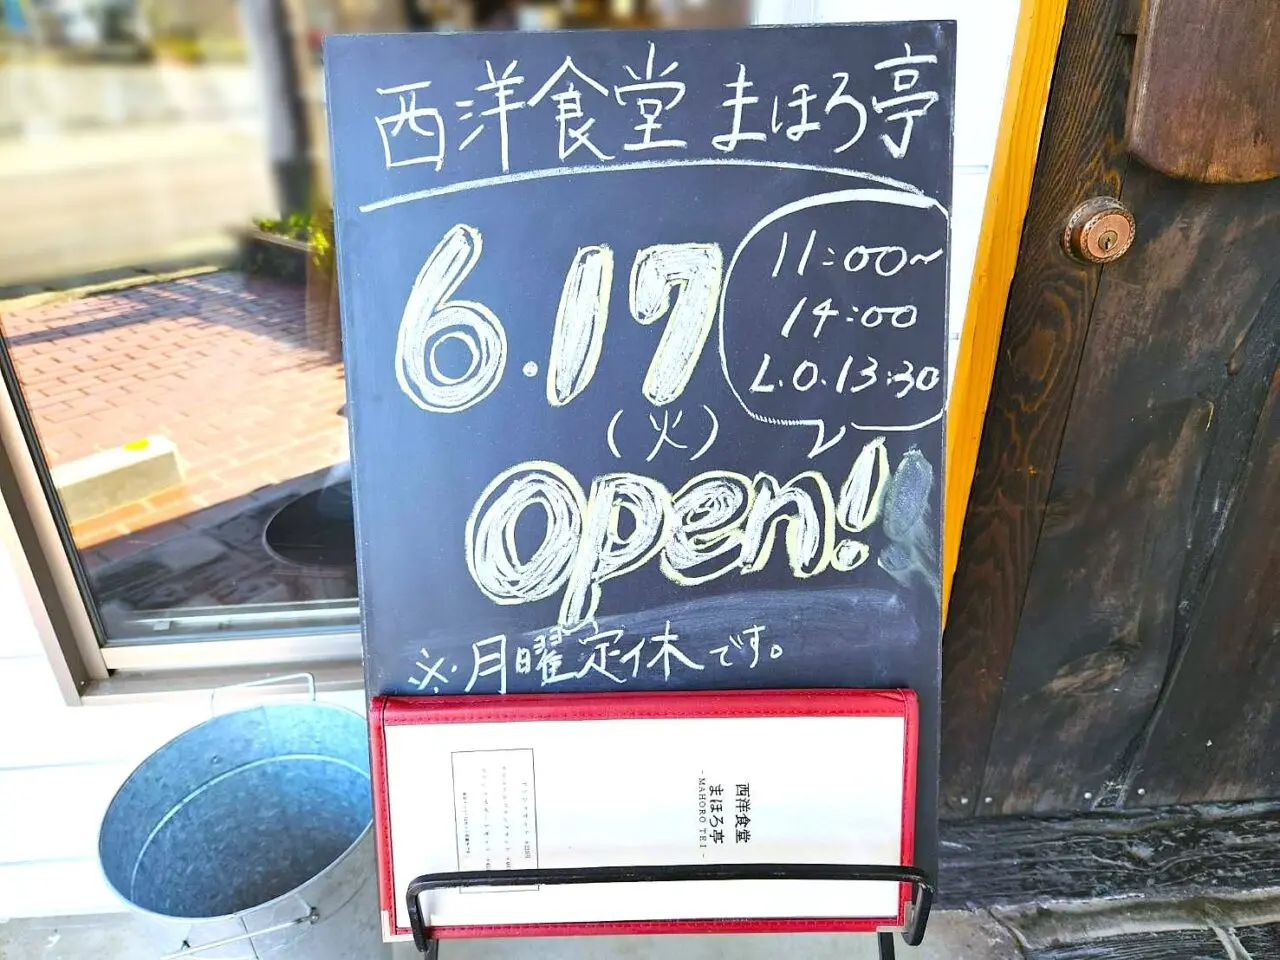 西洋食堂 まほろ亭
6.17
(火)
11:00~
14:00
L.O.13:30
open!
※月曜定休です。
西洋食堂
まほろ亭
- MAHORO TEI -